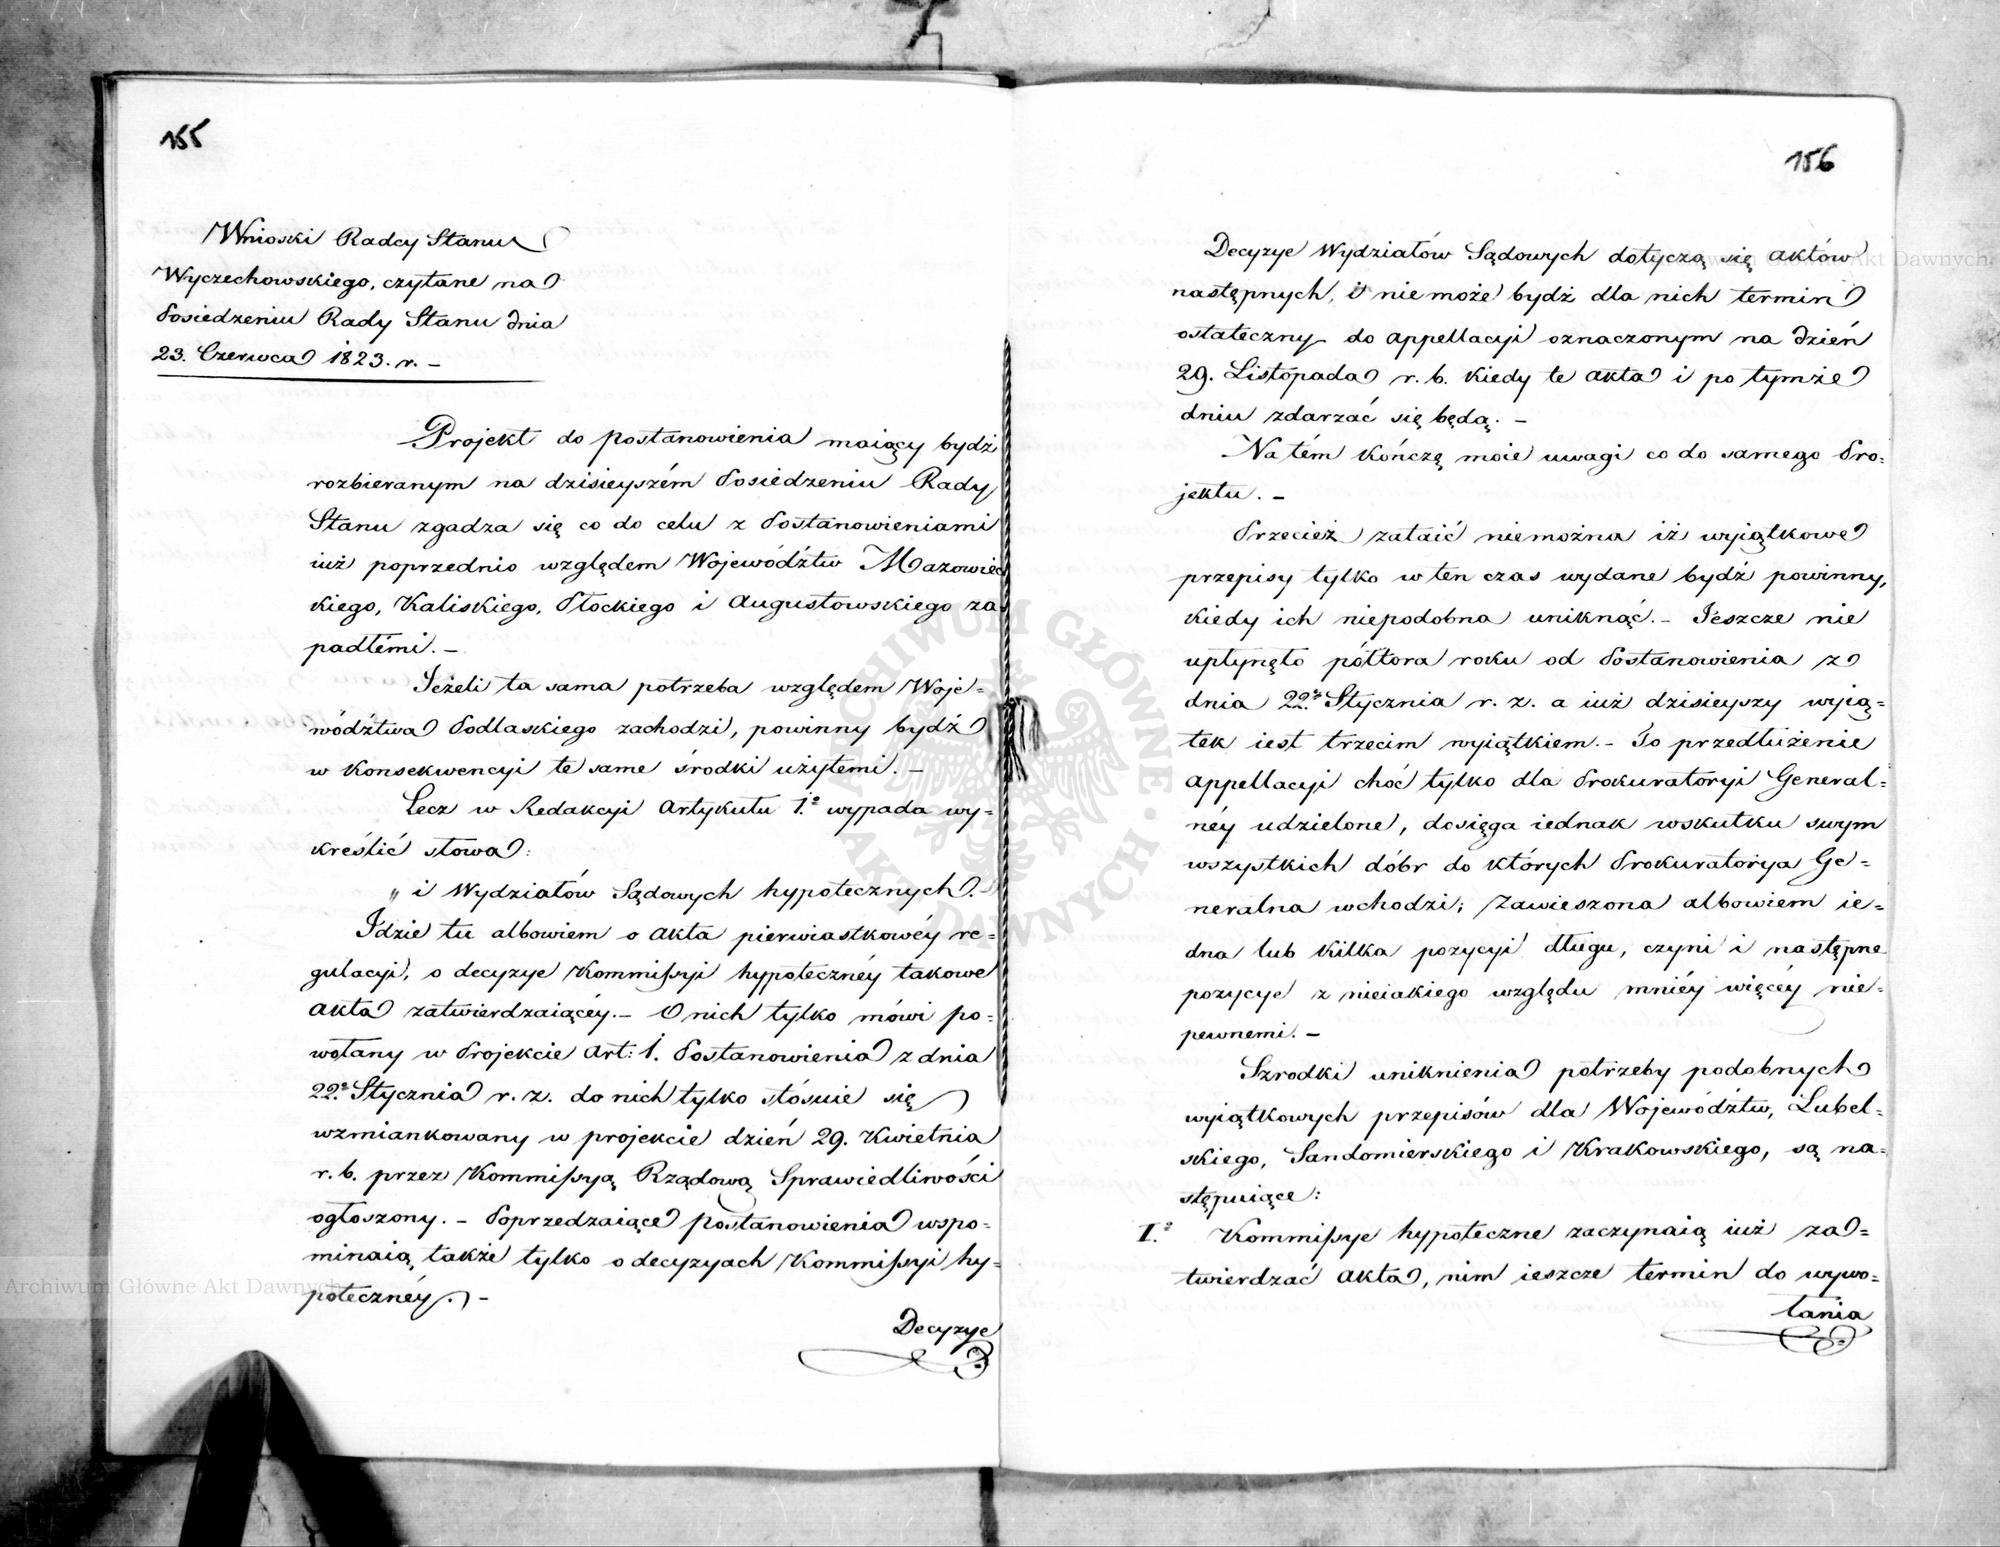 155
Wnioski Radcy Stanu
Wyczechowskiego, czytane na
Posiedzeniu Rady Stanu dnia
23. Czerwca 1823. r. –
Projekt do postanowienia maiący bydź
rozbieranym na dzisieyszém Posiedzeniu Rady
Stanu zgadza się co do celu z Postanowieniami
iuż poprzednio względem Województw Mazowiec
kiego, Kaliskiego, Płockiego i Augustowskiego za
padłémi. –
Jeżeli ta sama potrzeba względem Woje=
wództwa Podlaskiego zachodzi, powinny bydź
w konsekwencyi te same środki użytemi. –
Lecz w Redakcyi Artykułu 1.º wypada wy=
kreślić słowa:
„ i Wydziałów Sądowych hypotecznych. –
Jdzie tu albowiem o akta pierwiastkowéy re=
gulacyi, o decyzye Kommissyi hypotecznéy takowe
akta zatwierdzaiącéy. – O nich tylko mówi po=
wołany w Projekcie Art: 1. Postanowienia z dnia
22º Stycznia r. z. do nich tylko stósuie się
wzmiankowany w projekcie dzień 29. Kwietnia
r. b. przez Kommissyą Rządową Sprawiedliwości
ogłoszony. – Poprzedzaiące postanowienia wspo=
minaią także tylko o decyzyach Kommissyi hy=
potecznéy. –
Decyzye
156
Decyzye Wydziałów Sądowych dotyczą się aktów
następnych, i nie może bydź dla nich termin
ostateczny do appellacyi oznaczonym na dzień
29. Listopada r. b. kiedy te akta i po tymże
dniu zdarzać się będą. –
Na tém kończę moie uwagi co do samego Pro=
jektu. –
Przecież zataić niemożna iż wyiątkowe
przepisy tylko w ten czas wydane bydź powinny,
kiedy ich niepodobna uniknąć. – Jeszcze nie
upłynęło półtora roku od Postanowienia z
dnia 22º Stycznia r. z. a iuż dzisieyszy wyią=
tek iest trzecim wyiątkiem. – To przedłużenie
appellacyi choć tylko dla Prokuratoryi General=
néy udzielone, dosięga iednak wskutku swym
wszystkich dóbr do których Prokuratorya Ge=
neralna wchodzi; Zawieszona albowiem ie=
dna lub kilka pozycyi długu, czyni i następne
pozycye z nieiakiego względu mniéy więcéy nie=
pewnemi. –
Szrodki uniknienia potrzeby podobnych
wyiątkowych przepisów dla Województw, Lubel=
skiego, Sandomierskiego i Krakowskiego, są na=
stępuiące:
I.º Kommissye hypoteczne zaczynaią iuż za=
twierdzać akta, nim ieszcze termin do wywo=
łania
Archiwum Główne Akt Dawnych
Archiwum Główne Akt Dawnych
ARCHIWUM GŁÓWNE
AKT DAWNYCH